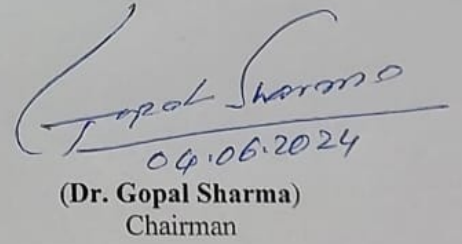 Gopal Sharma
04.06.2024
(Dr. Gopal Sharma)
Chairman